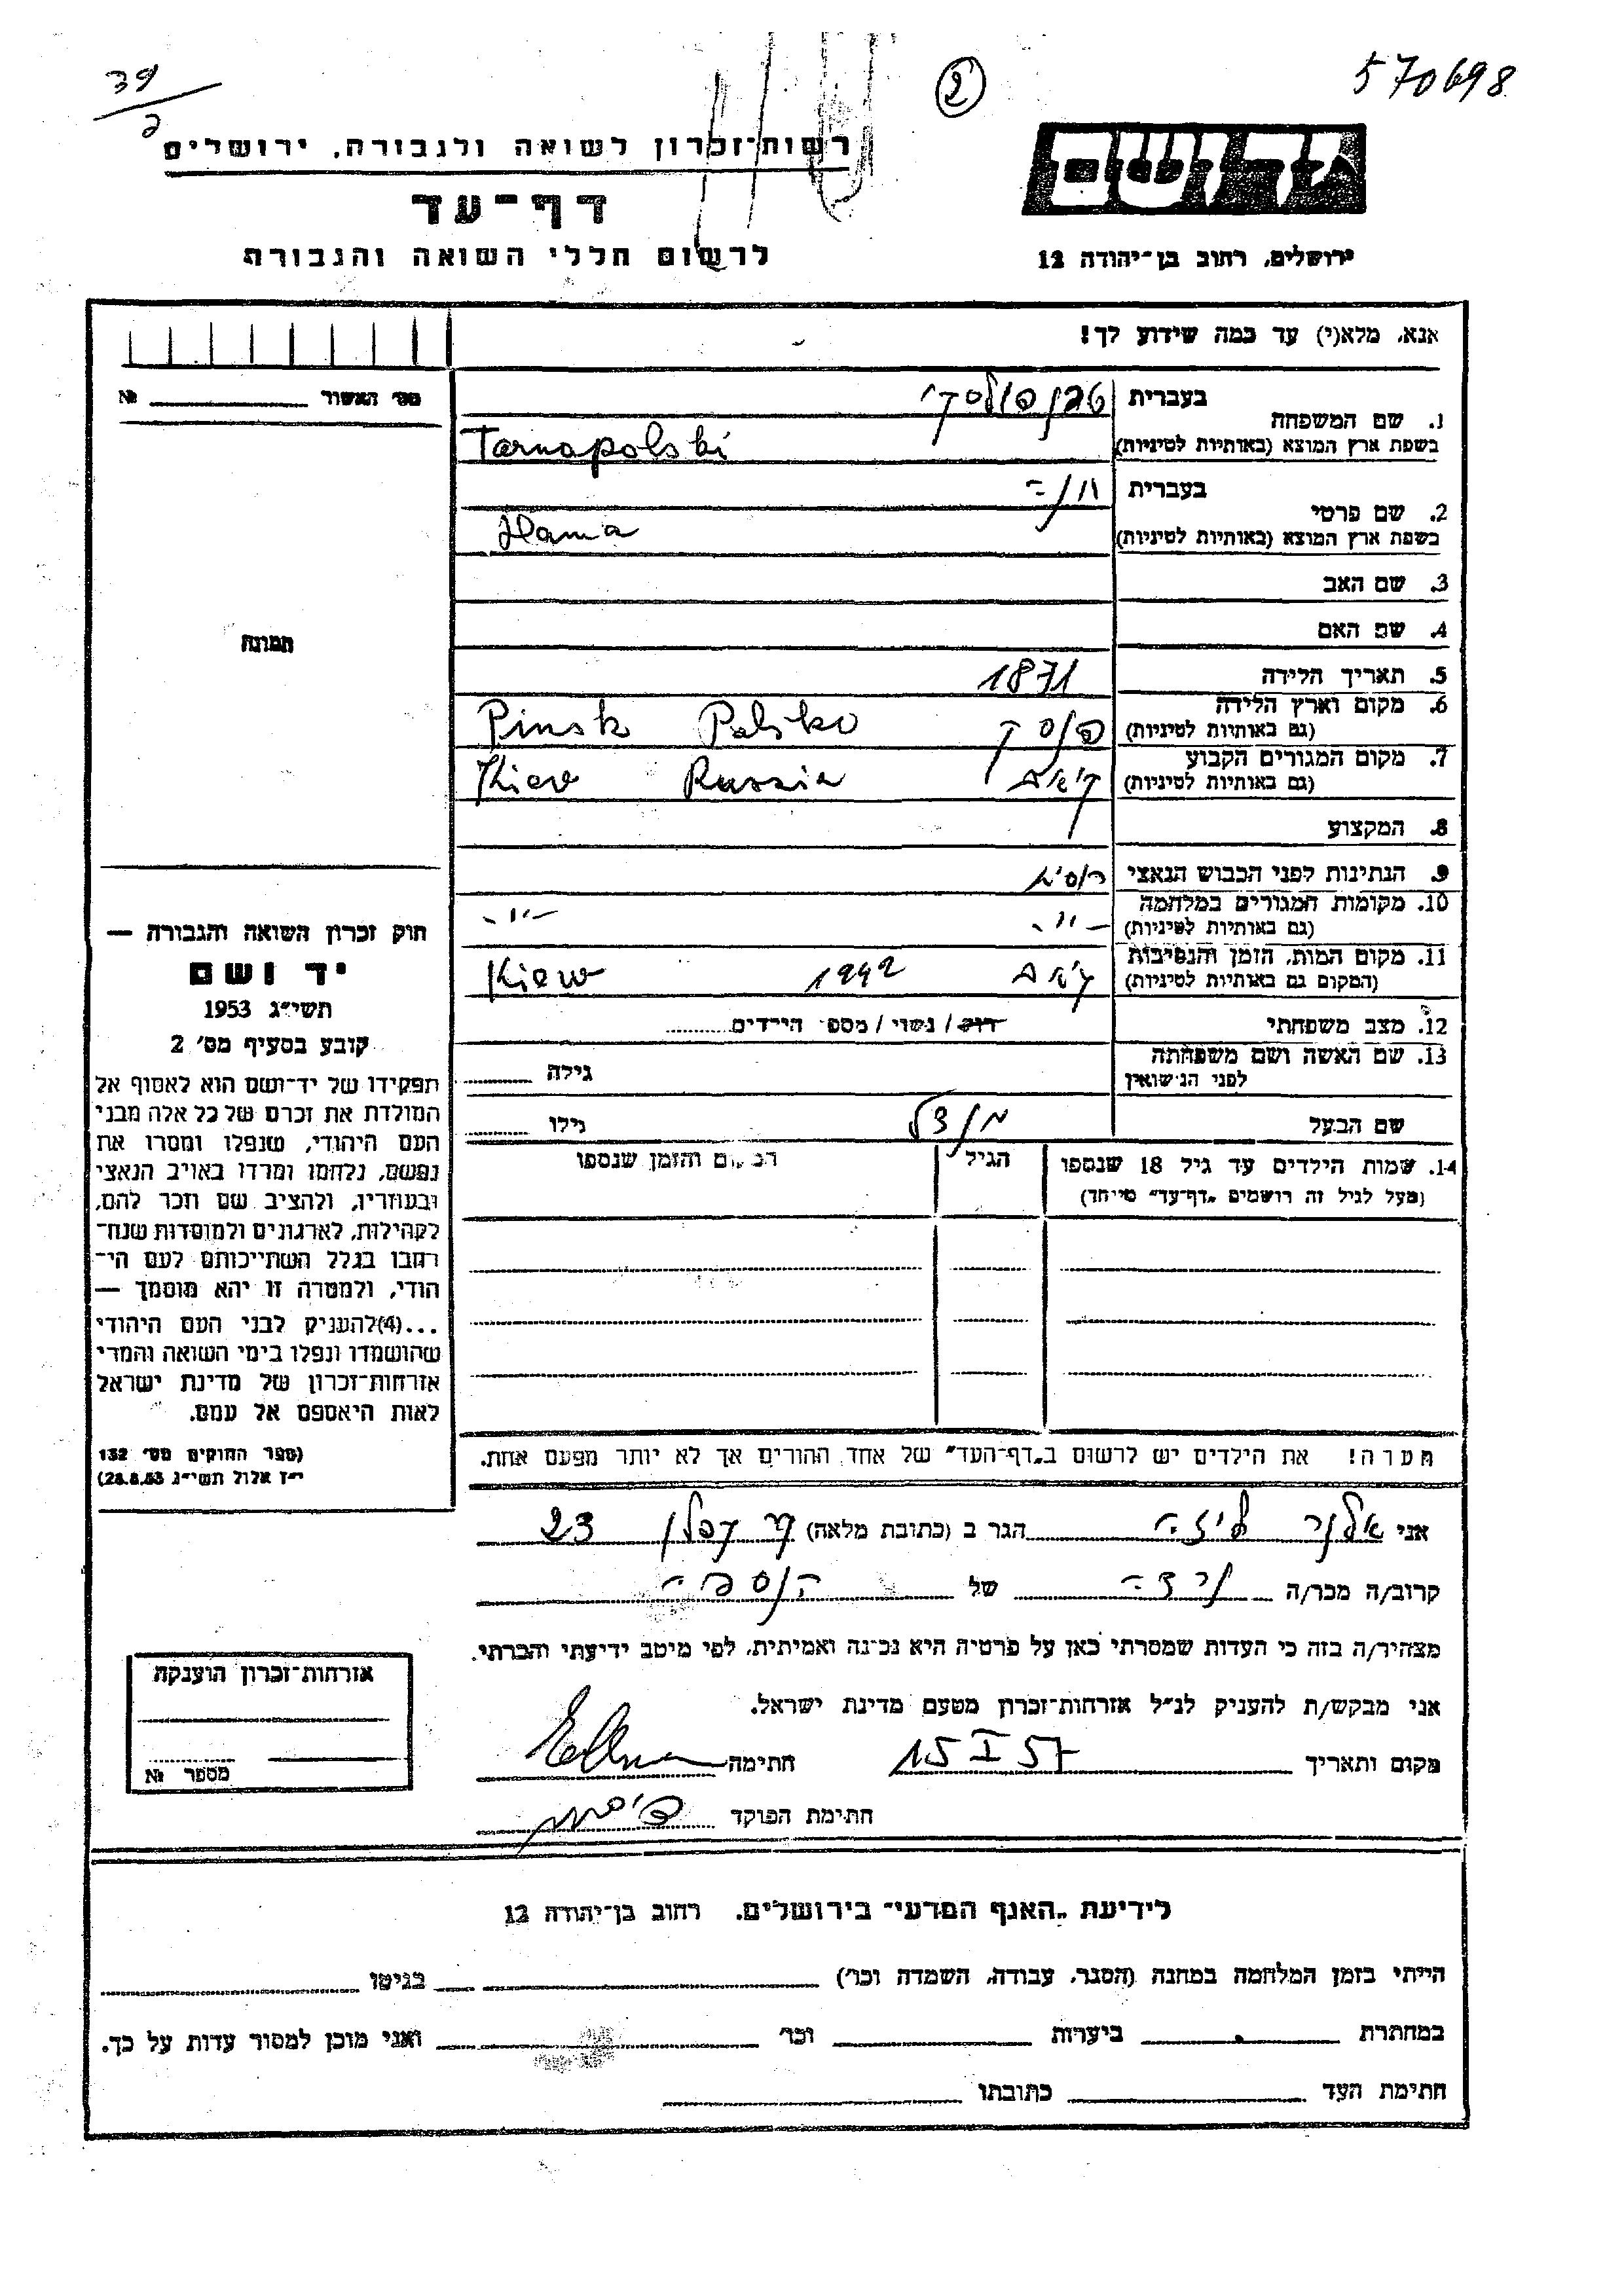 39
2
2
570698
רשות־זכרון לשואה ולגבורה, ירושלים
דף־עד
לרשום חללי השואה והגבורה
יד ושם
ירושלים, רחוב בן־יהודה 12
אנא, מלא(י) עד כמה שידוע לך!
מס׳ האשור № 
1. שם המשפחה
בעברית טרנפולסקי
בשפת ארץ המוצא (באותיות לטיניות) Tarnapolski
2. שם פרטי
בעברית חנה
בשפת ארץ המוצא (באותיות לטיניות) Hana
3. שם האב
4. שם האם
5. תאריך הלידה 1871
6. מקום וארץ הלידה
(גם באותיות לטיניות) פינסק Pinsk Polska
7. מקום המגורים הקבוע
(גם באותיות לטיניות) קיאב Kiew Russia
8. המקצוע
9. הנתינות לפני הכבוש הנאצי רוסית
10. מקומות המגורים במלחמה
(גם באותיות לטיניות) -"- -"-
11. מקום המות, הזמן והנסיבות
(המקום גם באותיות לטיניות) קיאב 1942 Kiew
12. מצב משפחתי רוק / נשוי / מספר הילדים
13. שם האשה ושם משפחתה
לפני הנישואין גילה
שם הבעל מנדל גילו
14. שמות הילדים עד גיל 18 שנספו הגיל המקום והזמן שנספו
(מעל לגיל זה רושמים „דף־עד״ מיוחד)
הערה! את הילדים יש לרשום ב„דף־העד״ של אחד ההורים אך לא יותר מפעם אחת.
תמונה
חוק זכרון השואה והגבורה —
יד ושם
תשי״ג 1953
קובע בסעיף מס׳ 2
תפקידו של יד־ושם הוא לאסוף אל
המולדת את זכרם של כל אלה מבני
העם היהודי, שנפלו ומסרו את
נפשם, נלחמו ומרדו באויב הנאצי
ובעוזריו, ולהציב שם וזכר להם,
לקהילות, לארגונים ולמוסדות שנח־
רבו בגלל השתייכותם לעם הי־
הודי, ולמטרה זו יהא מוסמך —
...(4)להעניק לבני העם היהודי
שהושמדו ונפלו בימי השואה והמרי
אזרחות־זכרון של מדינת ישראל
לאות היאספם אל עמם.
(ספר החוקים מס׳ 132
י״ז אלול תשי״ג 28.8.53)
אני הגר ב (כתובת מלאה) 23
קרוב/ה מכר/ה נכדה של הנספה
מצהיר/ה בזה כי העדות שמסרתי כאן על פרטיה היא נכונה ואמיתית, לפי מיטב ידיעתי והכרתי.
אני מבקש/ת להעניק לנ״ל אזרחות־זכרון מטעם מדינת ישראל.
מקום ותאריך 15 I 57 חתימה
חתימת הפוקד
אזרחות־זכרון הוענקה
מספר №
לידיעת „האגף המדעי״ בירושלים, רחוב בן־יהודה 12
הייתי בזמן המלחמה במחנה (הסגר, עבודה, השמדה וכו׳) בגיטו
במחתרת ביערות וכו׳ ואני מוכן למסור עדות על כך.
חתימת העד כתובתו